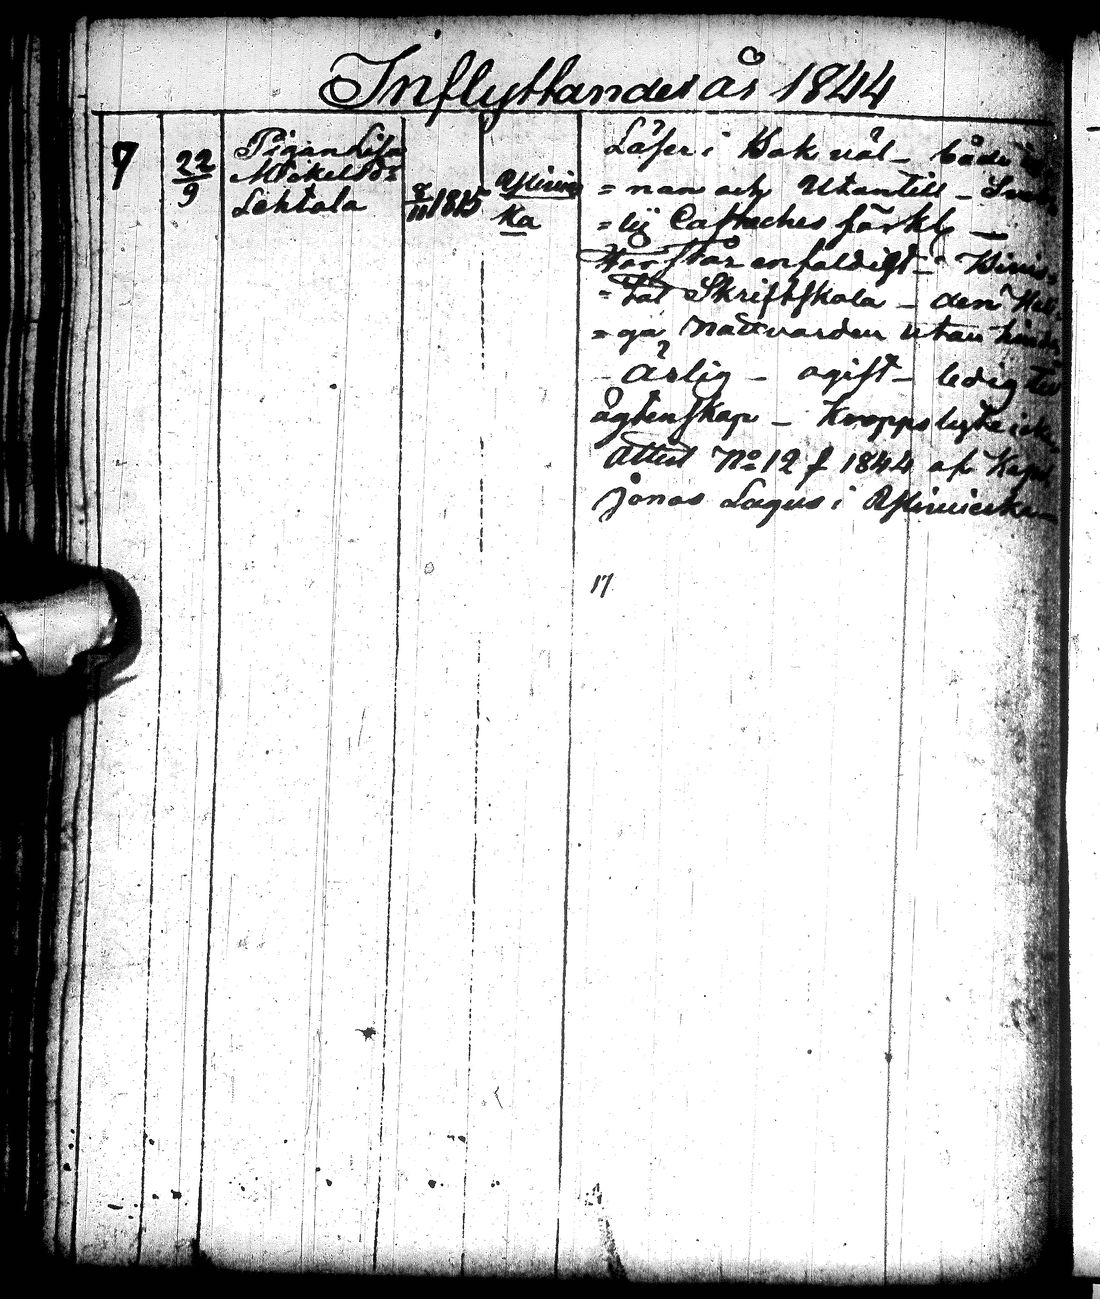 Inflyttandes år 1844
7
22/9
Pigan Lisa
Mickelsdr
Lehtola
2/11 1815
Ylivies
ka
Läser i Bok väl - både in=
=nan och Utantill - Svebi=
=lij Catheches förkl -
Förstår enfaldigt - Bevis=
=tat Skriftskola - den Heli=
=ga Nattvarden utan hinder
- Ärlig - ogift - ledig till
ägtenskap - Kroppslyte icke
Attest No 12 f 1844 af Kapl
Jonas Lagus i Ylivieska -
17